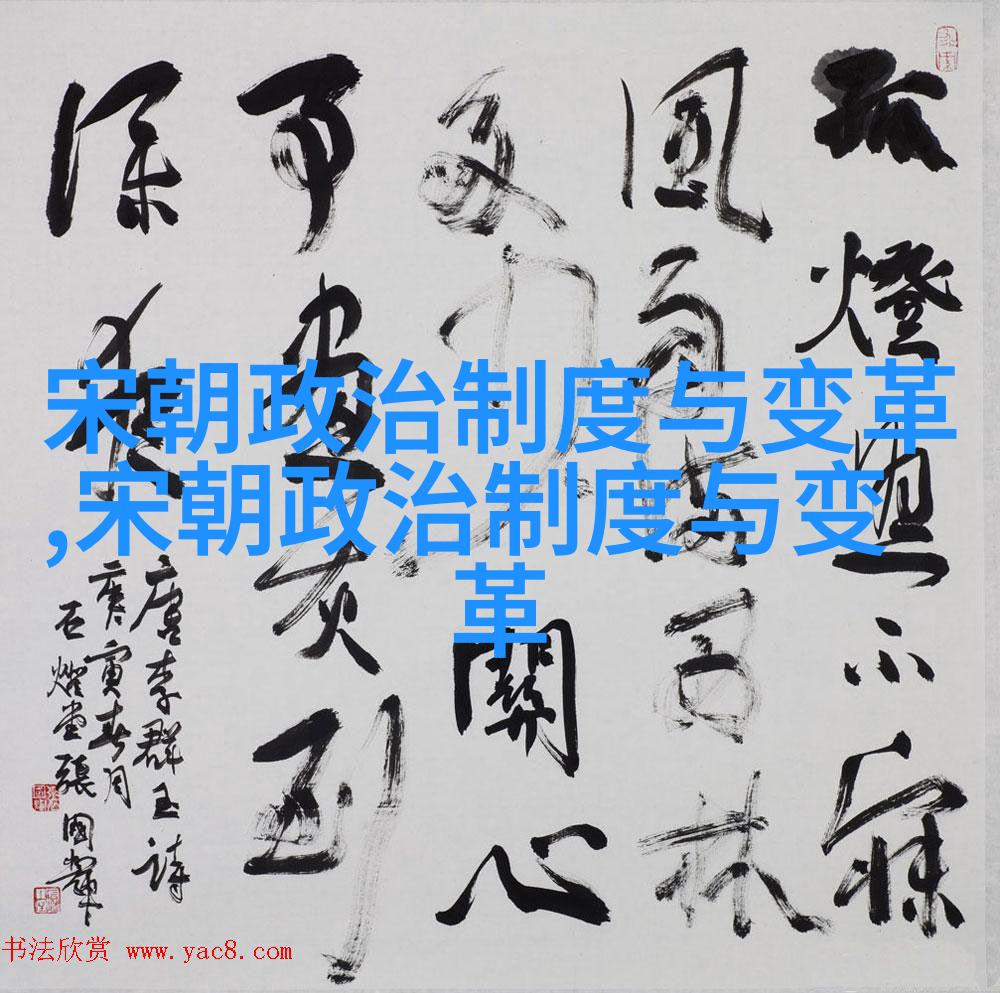 宋朝政治制度与变革
,宋朝政治制度与变
革
孤燈照不寐
風雨滿西林
多少關心
事書灰到
深夜
唐李群玉詩
庚寅春月
石堂張國輝
书法欣赏 www.yac8.com